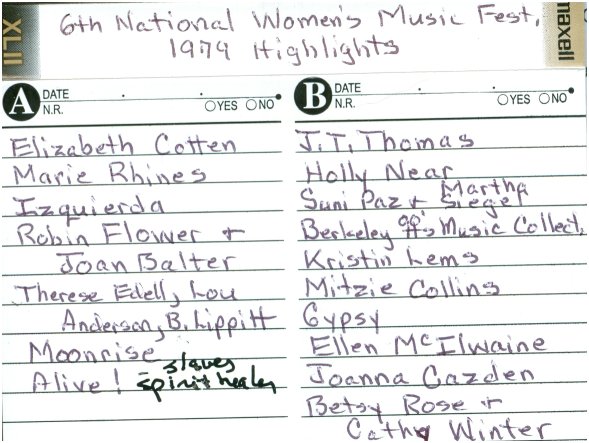 XLII
maxell
6th National Women's Music Fest.
1979 Highlights
A DATE . . .
N.R. ○YES ○NO
Elizabeth Cotten
Marie Rhines
Izquierda
Robin Flower +
Joan Balter
Therese Edell, Lou
Anderson, B. Lippitt
Moonrise
Alive! - slaves
spirit healer
B DATE . . .
N.R. ○YES ○NO
J.T. Thomas
Holly Near
Suni Paz + Martha Siegel
Berkeley ♀♀'s Music Collect.
Kristin Lems
Mitzie Collins
Gypsy
Ellen McIlwaine
Joanna Cazden
Betsy Rose +
Cathy Winter